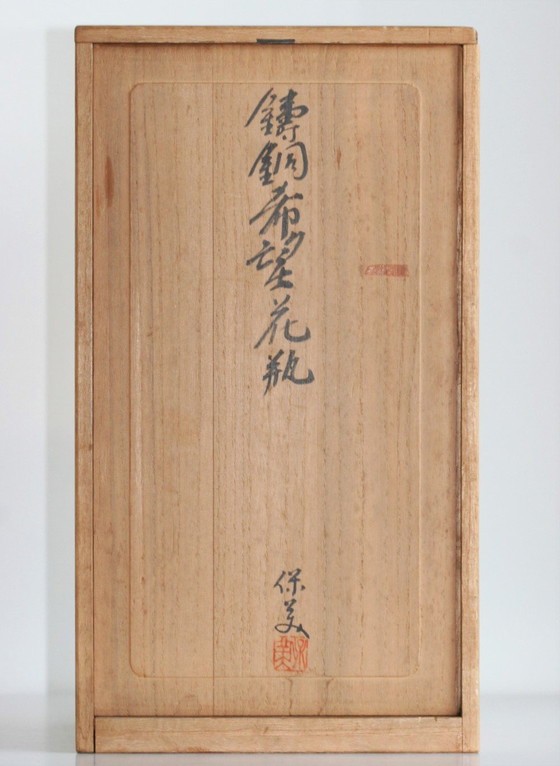 鋳銅希望花瓶
保美